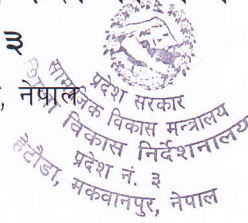 ३
, नेपाल
प्रदेश सरकार
सामाजिक विकास मन्त्रालय
विकास निर्देशनालय
प्रदेश नं. ३
हेटौडा, मकवानपुर, नेपाल